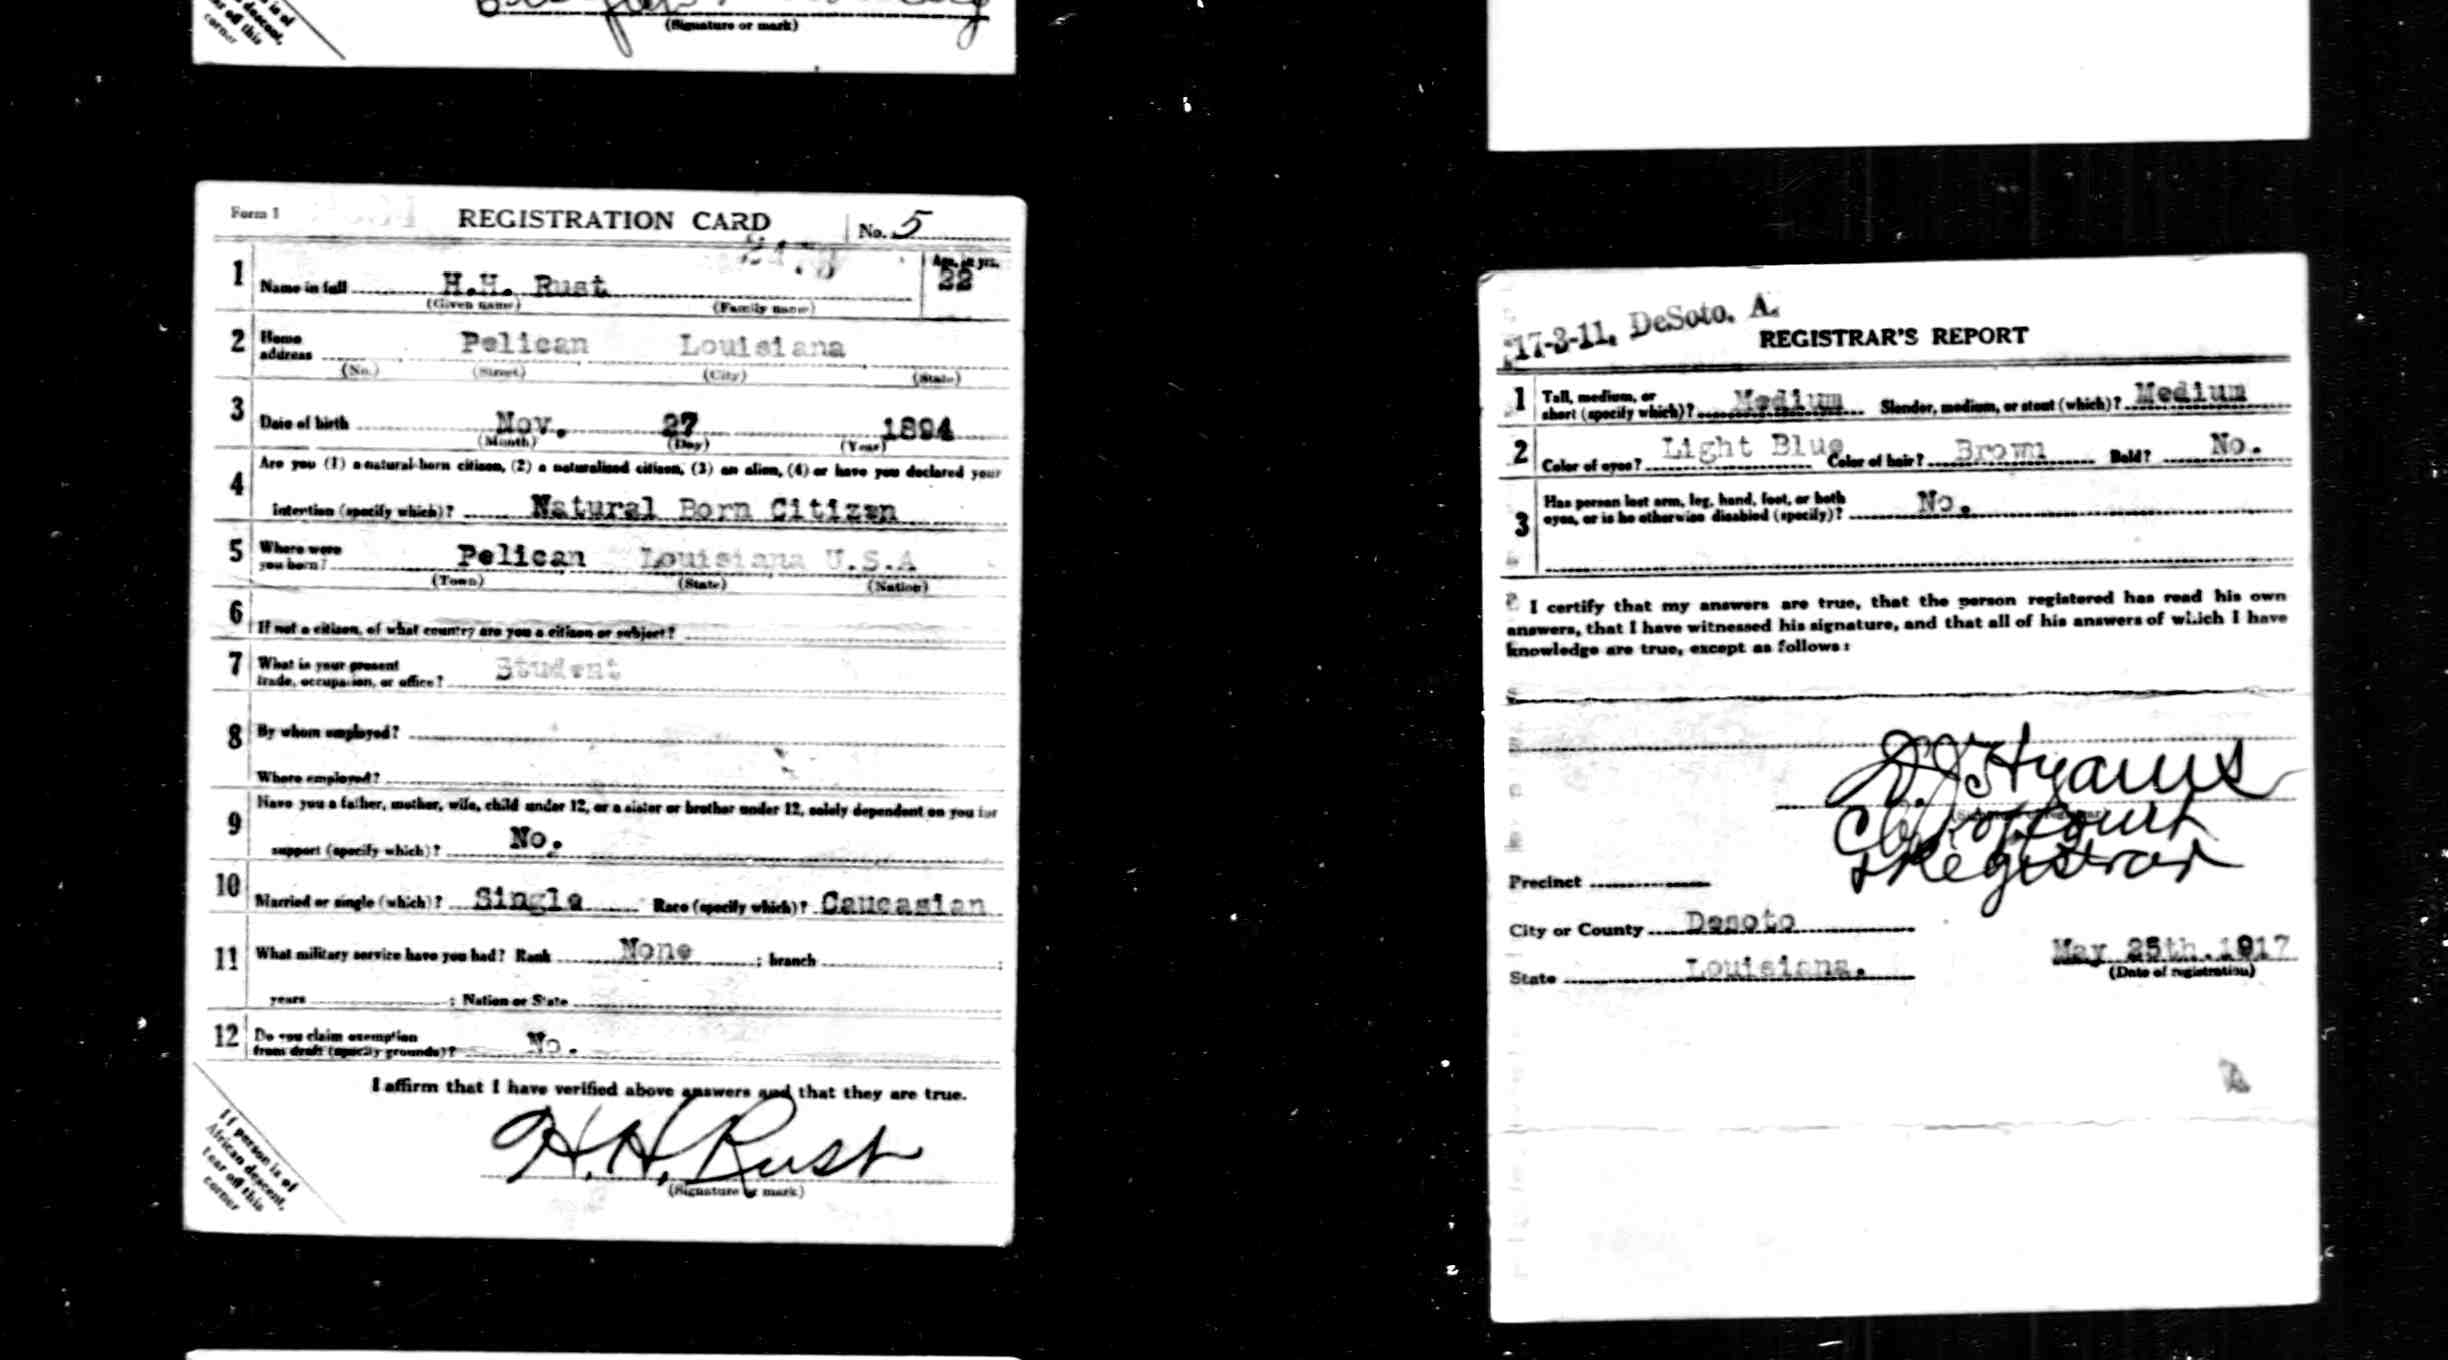 (Signature or mark)
is of
descent,
off this
corner
Form 1 REGISTRATION CARD No. 5
1 Name in full H.H. Rust Age, in yrs. 22
(Given name) (Family name)
2 Home address Pelican Louisiana
(No.) (Street) (City) (State)
3 Date of birth Nov. 27 1894
(Month) (Day) (Year)
4 Are you (1) a natural-born citizen, (2) a naturalized citizen, (3) an alien, (4) or have you declared your
intention (specify which)? Natural Born Citizen
5 Where were
you born? Pelican Louisiana U.S.A
(Town) (State) (Nation)
6 If not a citizen, of what country are you a citizen or subject?
7 What is your present
trade, occupation, or office? Student
8 By whom employed?
Where employed?
9 Have you a father, mother, wife, child under 12, or a sister or brother under 12, solely dependent on you for
support (specify which)? No.
10 Married or single (which)? Single Race (specify which)? Caucasian
11 What military service have you had? Rank None ; branch ;
years ; Nation or State
12 Do you claim exemption
from draft (specify grounds)? No.
I affirm that I have verified above answers and that they are true.
H.H. Rust
(Signature or mark)
If person is of
African descent,
tear off this
corner
17-3-11, DeSoto. A.
REGISTRAR'S REPORT
1 Tall, medium, or
short (specify which)? Medium Slender, medium, or stout (which)? Medium
2 Color of eyes? Light Blue Color of hair? Brown Bald? No.
3 Has person lost arm, leg, hand, foot, or both
eyes, or is he otherwise disabled (specify)? No.
I certify that my answers are true, that the person registered has read his own
answers, that I have witnessed his signature, and that all of his answers of which I have
knowledge are true, except as follows:
Hyams
Clk of Court
& Registrar
Precinct
City or County Desoto
State Louisiana. May 25th. 1917
(Date of registration)